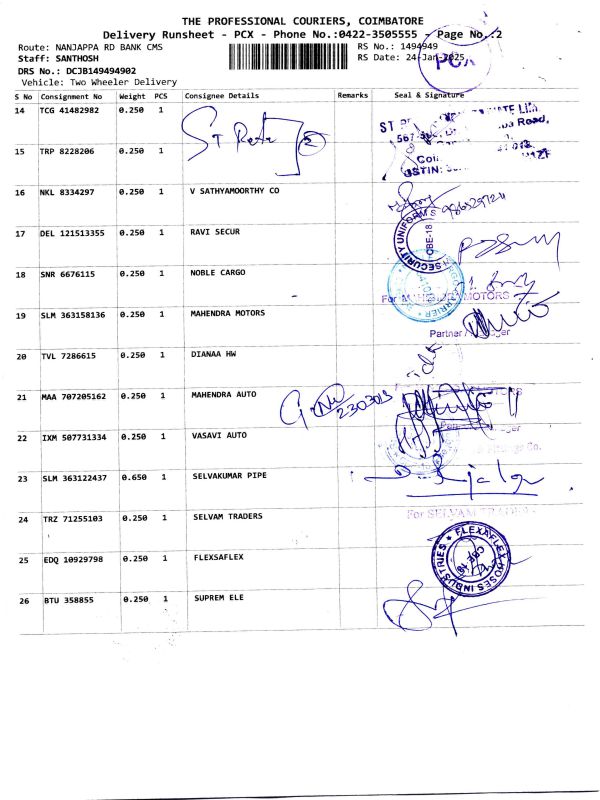 THE PROFESSIONAL COURIERS, COIMBATORE
Delivery Runsheet - PCX - Phone No.:0422-3505555 - Page No.:2
Route: NANJAPPA RD BANK CMS
RS No.: 1494949
Staff: SANTHOSH
RS Date: 24-Jan-2025
PCX
DRS No.: DCJB149494902
Vehicle: Two Wheeler Delivery
S No Consignment No Weight PCS Consignee Details Remarks Seal & Signature
14 TCG 41482982 0.250 1
15 TRP 8228206 0.250 1
16 NKL 8334297 0.250 1 V SATHYAMOORTHY CO
17 DEL 121513355 0.250 1 RAVI SECUR
SECURITY UNIFORMS
CBE-18
18 SNR 6676115 0.250 1 NOBLE CARGO
For MOTORS
19 SLM 363158136 0.250 1 MAHENDRA MOTORS
Partner
20 TVL 7286615 0.250 1 DIANAA HW
21 MAA 707205162 0.250 1 MAHENDRA AUTO
22 IXM 507731334 0.250 1 VASAVI AUTO
23 SLM 363122437 0.650 1 SELVAKUMAR PIPE
24 TRZ 71255103 0.250 1 SELVAM TRADERS
For SELVAM TRADERS
25 EDQ 10929798 0.250 1 FLEXSAFLEX
FLEXAFLEX HOSES INDUSTRIES
CBE-18
26 BTU 358855 0.250 1 SUPREM ELE